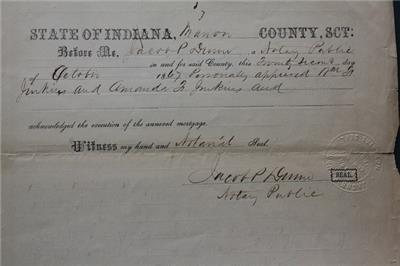 STATE OF INDIANA, Marion COUNTY, SCT:
Before Me, Jacob P Dunn a Notary Public
in and for said County, this Twenty Second day
of October 1867 Personally appeared Wm
Jenkins and Amanda Jenkins and
acknowledged the execution of the annexed mortgage.
Witness my hand and Notarial Seal.
Jacob P Dunn
Notary Public
SEAL.